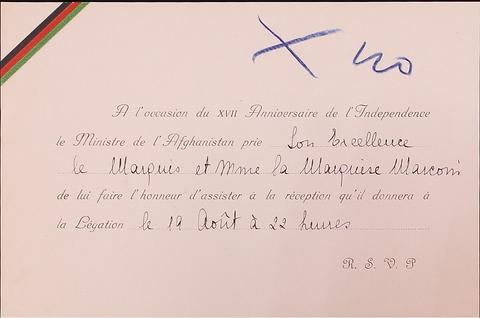 X no
A l'occasion du XVII Anniversaire de l'Independence
le Ministre de l'Afghanistan prie Son Excellence
le Marquis et Mme la Marquise Marconi
de lui faire l'honneur d'assister à la réception qu'il donnera à
la Légation le 19 Août à 22 heures
R. S. V. P